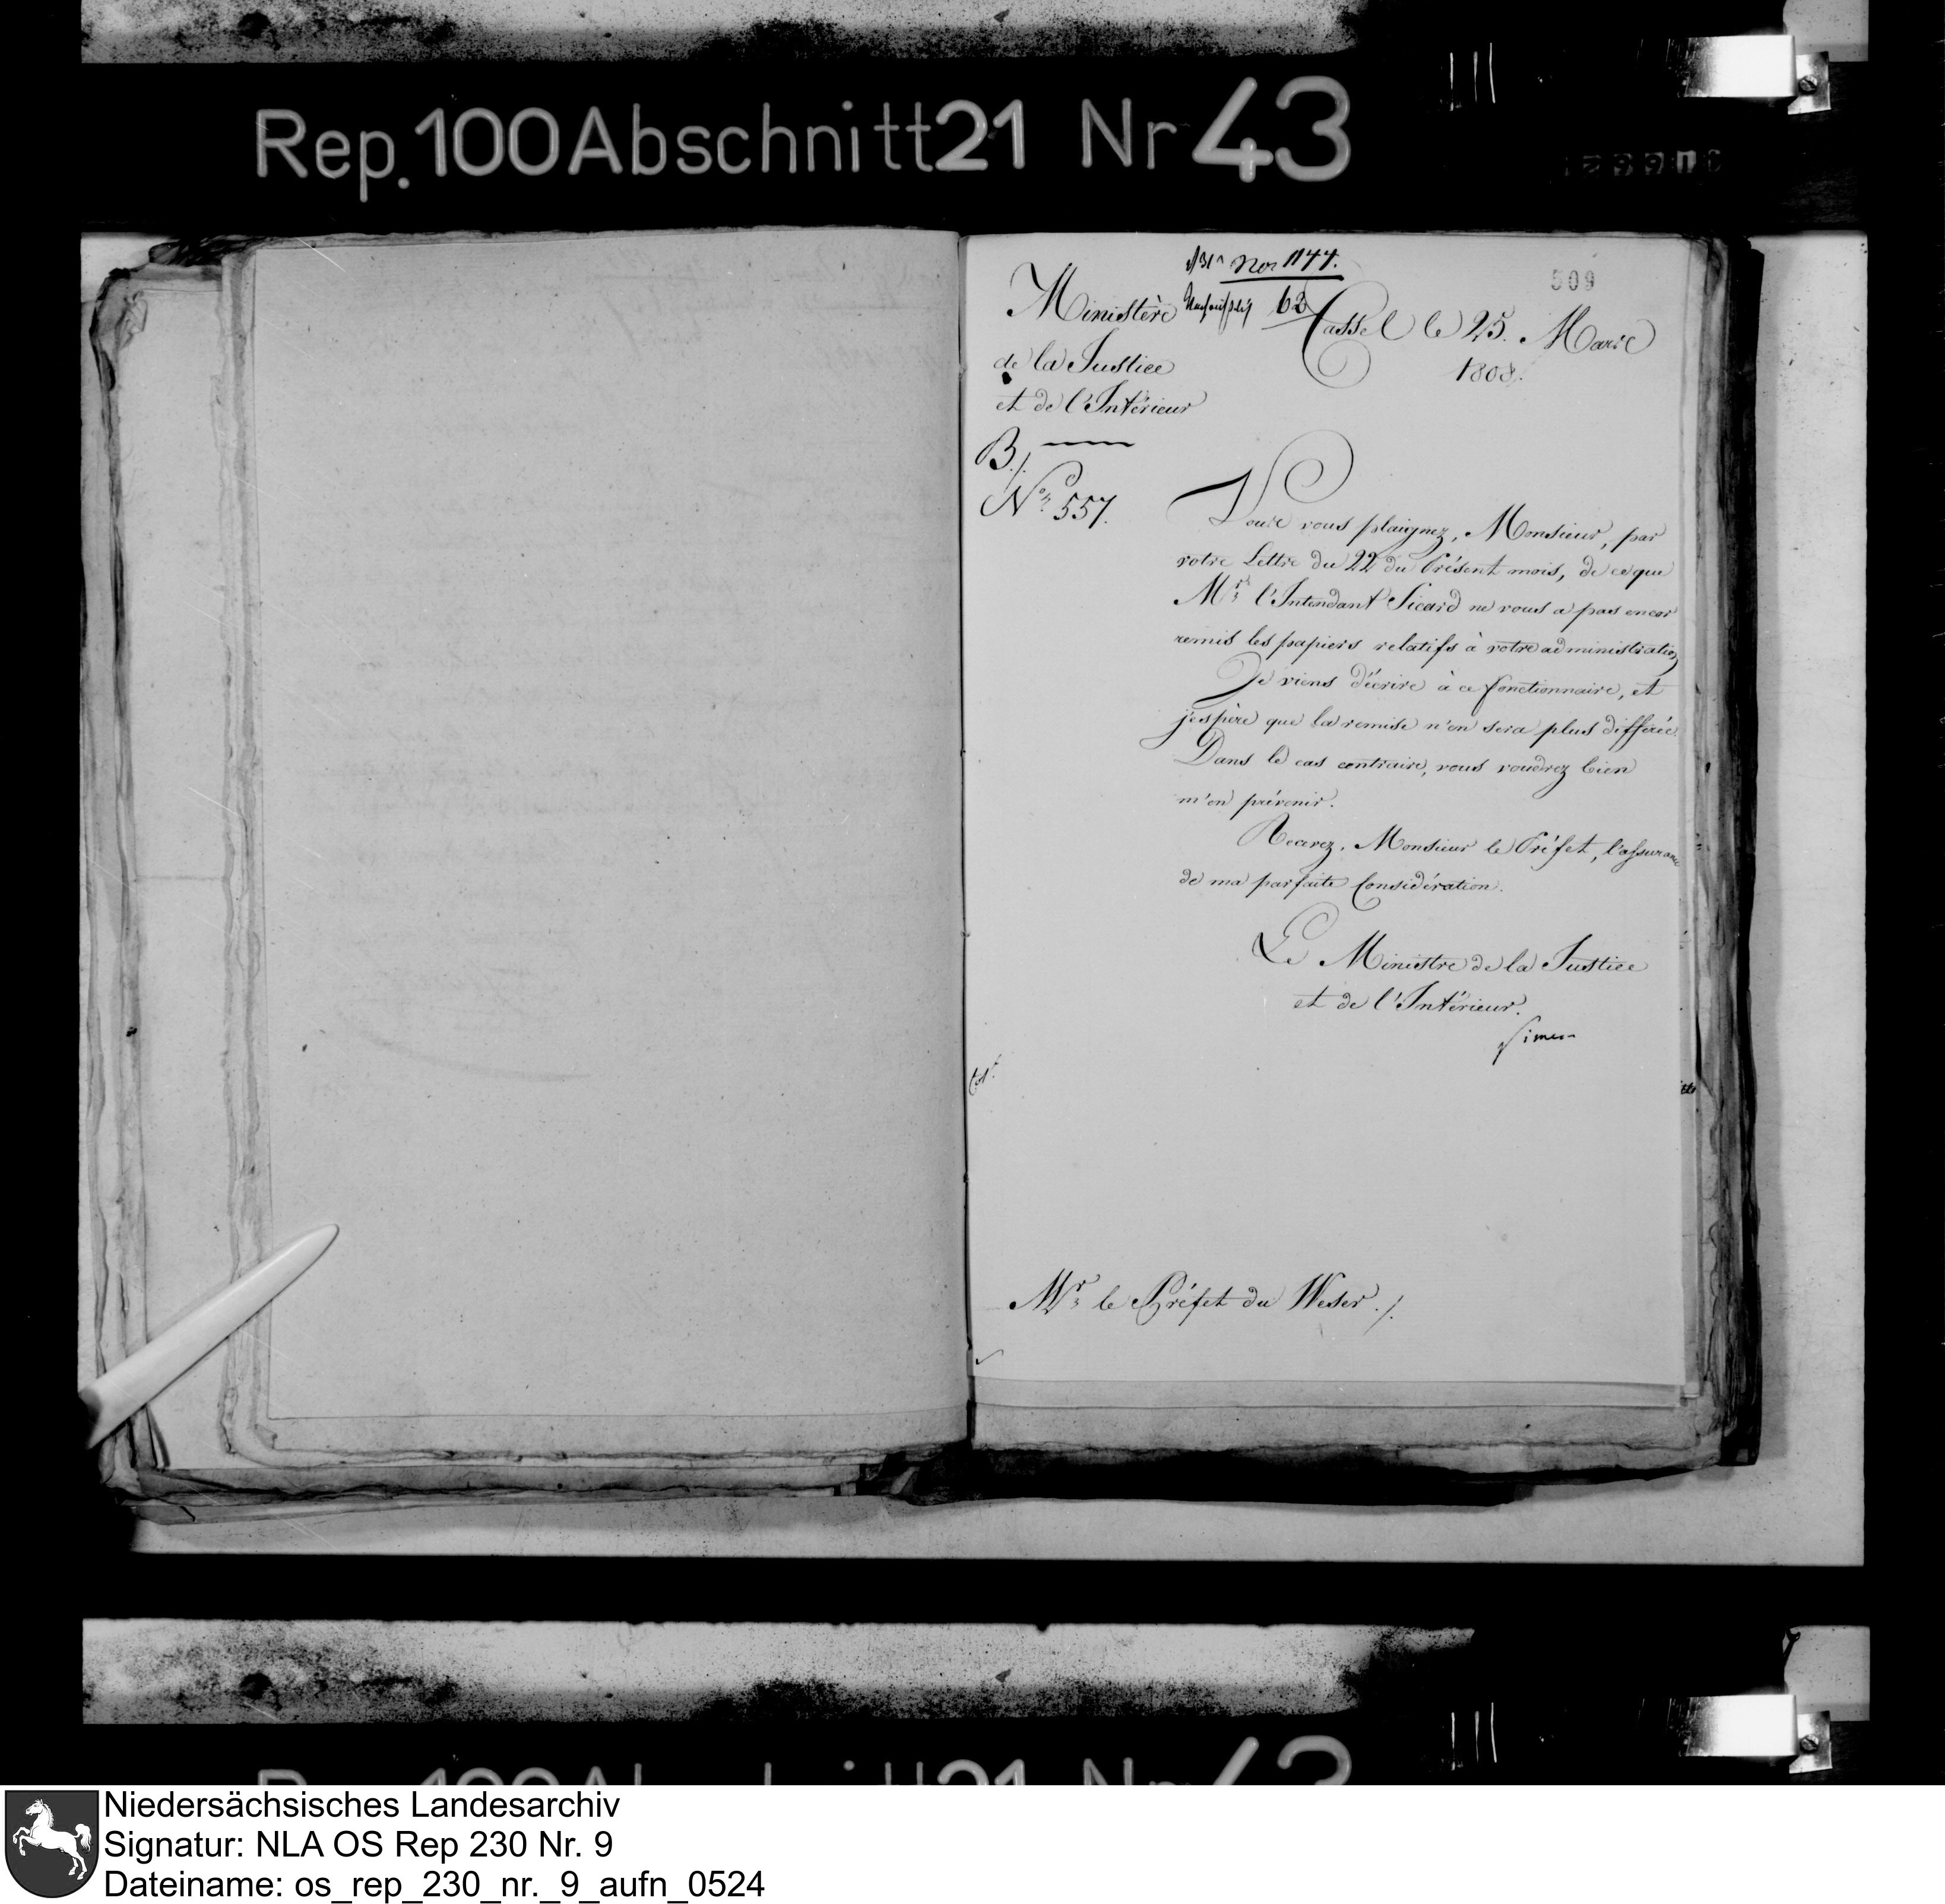 Rep. 100 Abschnitt 21 Nr 43
Nor 1144.
509
62
Ministère
de la Justice
et de l'Intérieur
B./.
N.° 557.
Cassel le 25. Mars
1808.
Vous vous plaignez, Monsieur, par
votre Lettre du 22 du Présent mois, de ce que
Mr. l'Intendant Sicard ne vous a pas encor
remis les papiers relatifs à votre administration
Je viens d'écrire à ce fonctionnaire, et
j'espère que la remise n'en sera plus différée.
Dans le cas contraire, vous voudrez bien
m'en prévenir.
Recevez, Monsieur le Préfet, l'assurance
de ma parfaite Considération.
Le Ministre de la Justice
et de l'Intérieur.
Simeon
Mr. le Préfet du Weser ./.
Niedersächsisches Landesarchiv
Signatur: NLA OS Rep 230 Nr. 9
Dateiname: os_rep_230_nr._9_aufn_0524